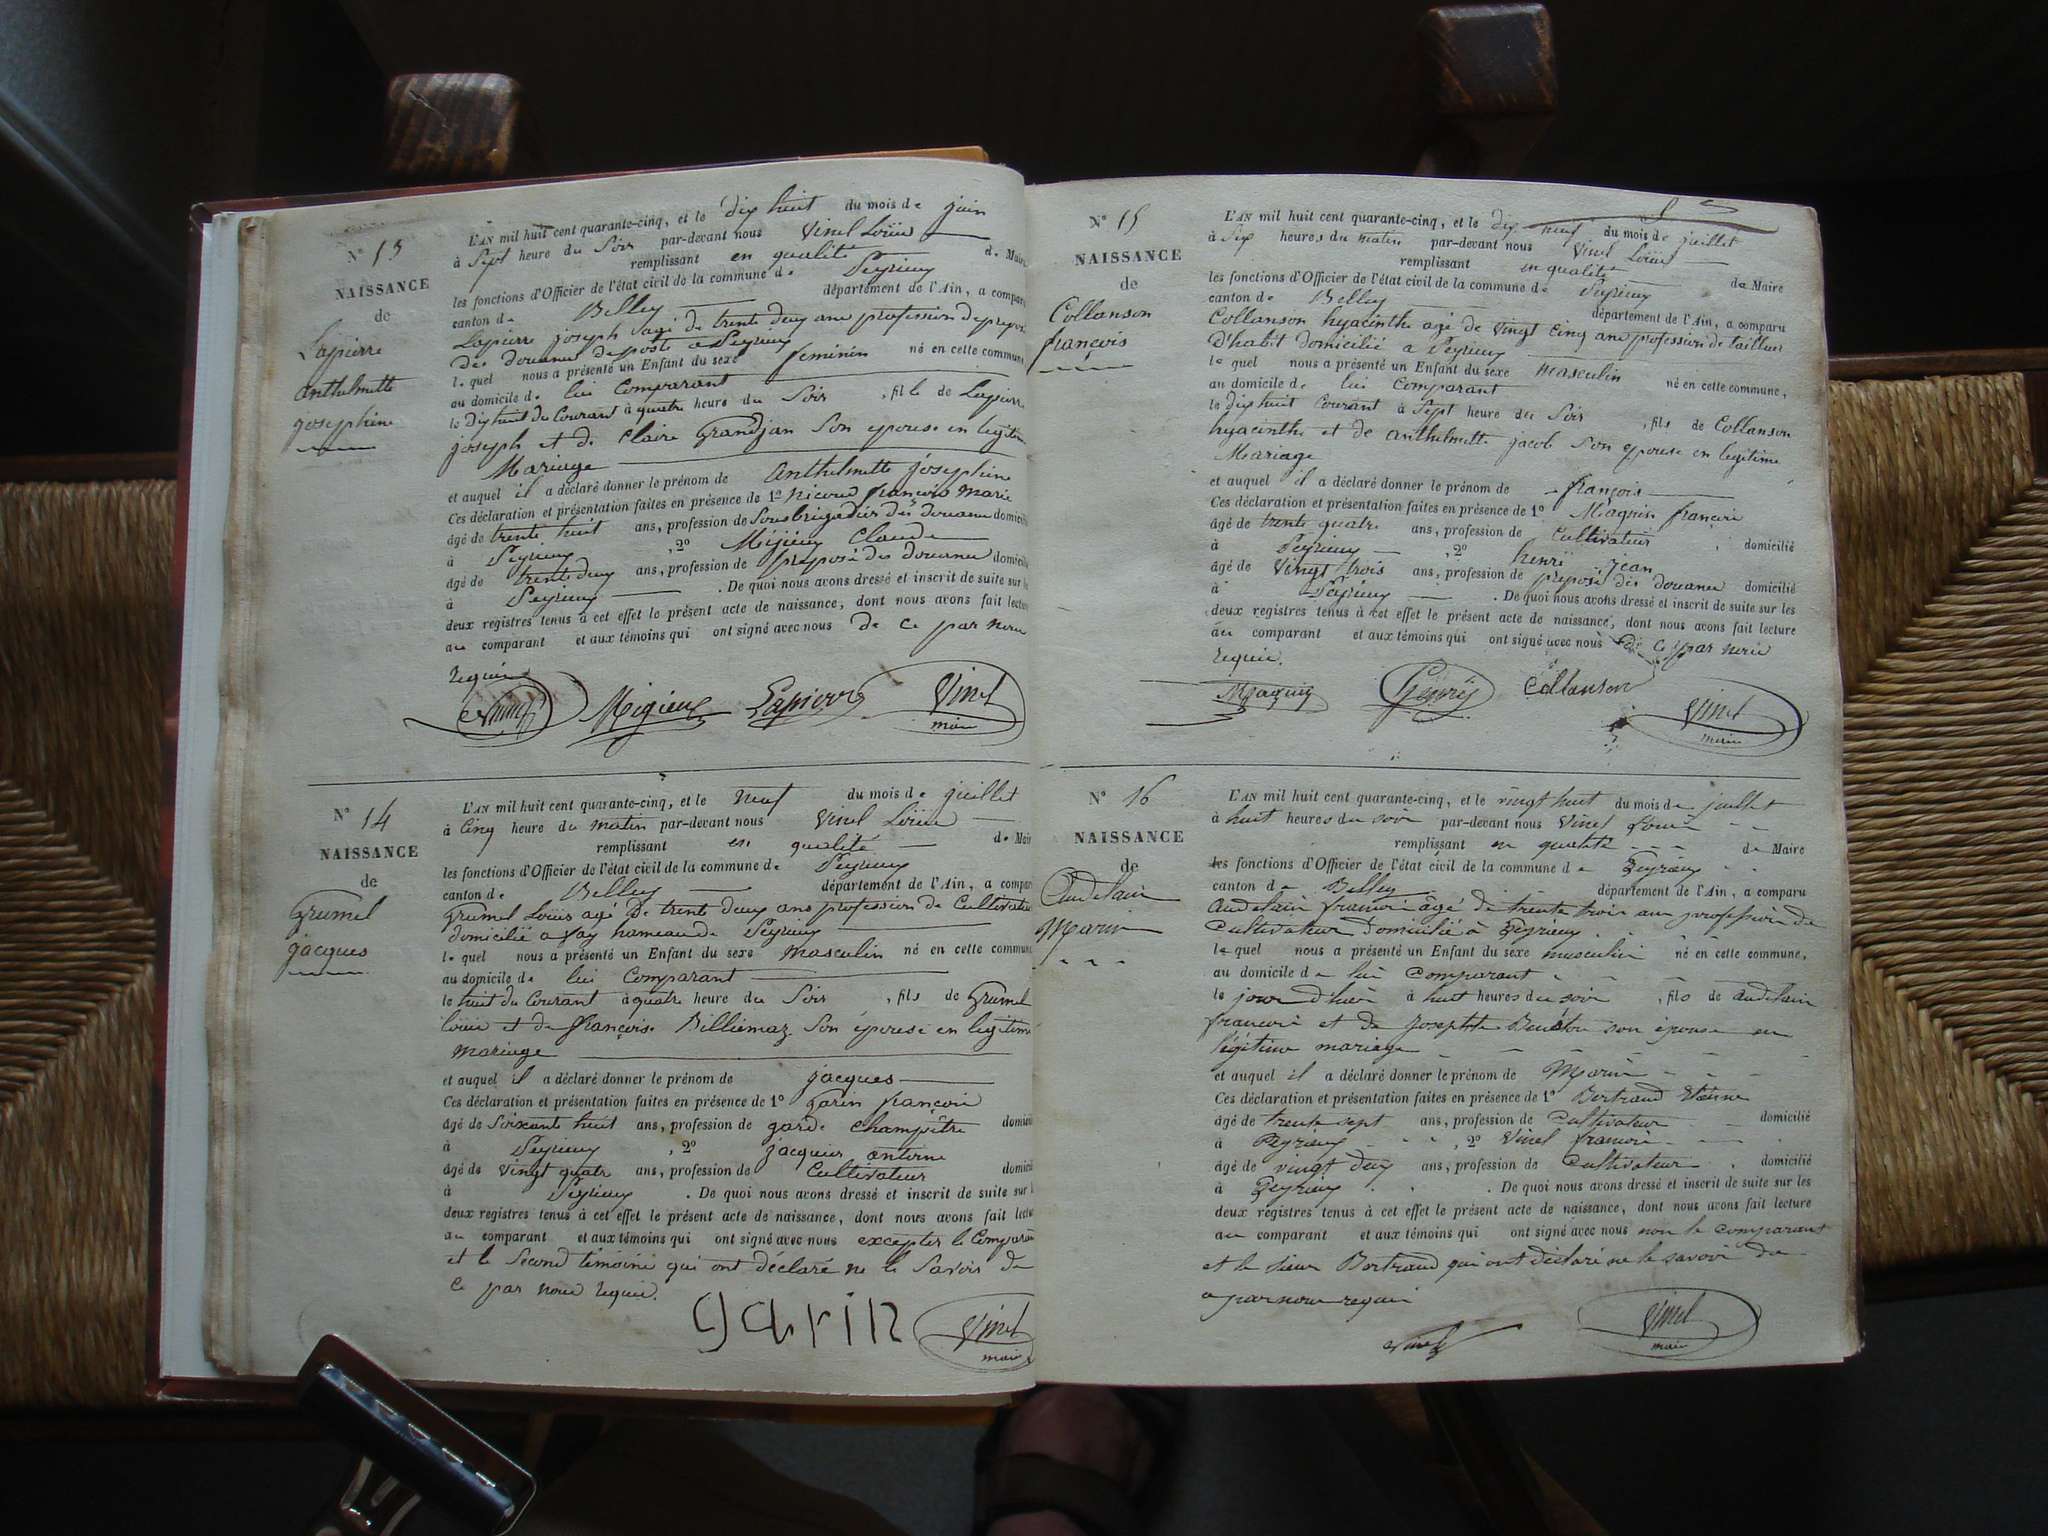 N° 13
NAISSANCE
de
Lapierre
anthelmette
josephine
L'AN mil huit cent quarante-cinq, et le dix huit du mois de juin
à Sept heure du Soir par-devant nous Vinel Loüis
remplissant en qualité de Maire
les fonctions d'Officier de l'état civil de la commune de Peyrieux
canton de Belley département de l'Ain, a comparu
Lapierre joseph agé de trente deux ans profession de préposé
des douanes de poste a Peyrieux
lequel nous a présenté un Enfant du sexe feminin né en cette commune
au domicile de lui Comparant
le dix huit du Courant à quatre heure du Soir, fille de Lapierre
joseph et de Claire Grandjan Son epouse en legitime
Mariage
et auquel il a déclaré donner le prénom de anthelmette josephine
Ces déclaration et présentation faites en présence de 1° nicoud françois marie
âgé de trente huit ans, profession de Sousbrigadier des douane domicilié
à Peyrieux, 2° Migieux Claude
âgé de trente deux ans, profession de préposé des douanes domicilié
à Peyrieux. De quoi nous avons dressé et inscrit de suite sur les
deux registres tenus à cet effet le présent acte de naissance, dont nous avons fait lecture
au comparant et aux témoins qui ont signé avec nous de ce par nous
requis
Migieux Lapierre Vinel
maire
N° 14
NAISSANCE
de
Grumel
jacques
L'AN mil huit cent quarante-cinq, et le neuf du mois de juillet
à Cinq heure du matin par-devant nous Vinel Loüis
remplissant en qualité de Maire
les fonctions d'Officier de l'état civil de la commune de Peyrieux
canton de Belley département de l'Ain, a comparu
Grumel Loüis agé de trente deux ans profession de Cultivateur
domicilié a fay hameau de Peyrieux
lequel nous a présenté un Enfant du sexe masculin né en cette commune
au domicile de lui Comparant
le huit du Courant à quatre heure du Soir, fils de Grumel
loüis et de françoise Billiemaz Son épouse en legitime
mariage
et auquel il a déclaré donner le prénom de jacques
Ces déclaration et présentation faites en présence de 1° Garin françois
âgé de Soixante huit ans, profession de garde Champêtre domicilié
à Peyrieux, 2° jacquier antoine
âgé de vingt quatre ans, profession de Cultivateur domicilié
à Peyrieux. De quoi nous avons dressé et inscrit de suite sur les
deux registres tenus à cet effet le présent acte de naissance, dont nous avons fait lecture
au comparant et aux témoins qui ont signé avec nous excepter le Comparant
et le Second témoins qui ont déclaré ne le Savoir de
ce par nous requis.
garin Vinel
maire
N° 15
NAISSANCE
de
Collanson
françois
L'AN mil huit cent quarante-cinq, et le dix neuf du mois de juillet
à Six heures du matin par-devant nous Vinel Loüis
remplissant en qualité de Maire
les fonctions d'Officier de l'état civil de la commune de Peyrieux
canton de Belley département de l'Ain, a comparu
Collanson hyacinthe agé de vingt Cinq ans profession de tailleur
d'habit domicilié a Peyrieux
lequel nous a présenté un Enfant du sexe masculin né en cette commune,
au domicile de lui Comparant
le dix huit Courant à Sept heure du Soir, fils de Collanson
hyacinthe et de anthelmette jacob Son epouse en legitime
Mariage
et auquel il a déclaré donner le prénom de françois
Ces déclaration et présentation faites en présence de 1° Maquin françois
âgé de trente quatre ans, profession de Cultivateur domicilié
à Peyrieux, 2° henri jean
âgé de Vingt trois ans, profession de préposé des douanes domicilié
à Peyrieux. De quoi nous avons dressé et inscrit de suite sur les
deux registres tenus à cet effet le présent acte de naissance, dont nous avons fait lecture
au comparant et aux témoins qui ont signé avec nous de ce par nous
requis.
Maquin henrij Collanson Vinel
maire
N° 16
NAISSANCE
de
Andelain
Marin
L'AN mil huit cent quarante-cinq, et le vingt huit du mois de juillet
à huit heures du soir par-devant nous Vinel Louis
remplissant en qualité de Maire
les fonctions d'Officier de l'état civil de la commune de Peyrieux
canton de Belley département de l'Ain, a comparu
Andelain francois âgé de trente trois ans profession de
Cultivateur domicilié à Peyrieux
lequel nous a présenté un Enfant du sexe masculin né en cette commune,
au domicile de lui comparant
le jour d'hier à huit heures du soir, fils de andelain
francois et de Josephte son épouse en
légitime mariage
et auquel il a déclaré donner le prénom de Marin
Ces déclaration et présentation faites en présence de 1° Bertrand Etienne
âgé de trente sept ans, profession de Cultivateur domicilié
à Peyrieux, 2° Vinel francois
âgé de vingt deux ans, profession de Cultivateur domicilié
à Peyrieux. De quoi nous avons dressé et inscrit de suite sur les
deux registres tenus à cet effet le présent acte de naissance, dont nous avons fait lecture
au comparant et aux témoins qui ont signé avec nous non le comparant
et le sieur Bertrand qui ont déclaré ne le savoir de
ce par nous requis
Vinel Vinel
maire